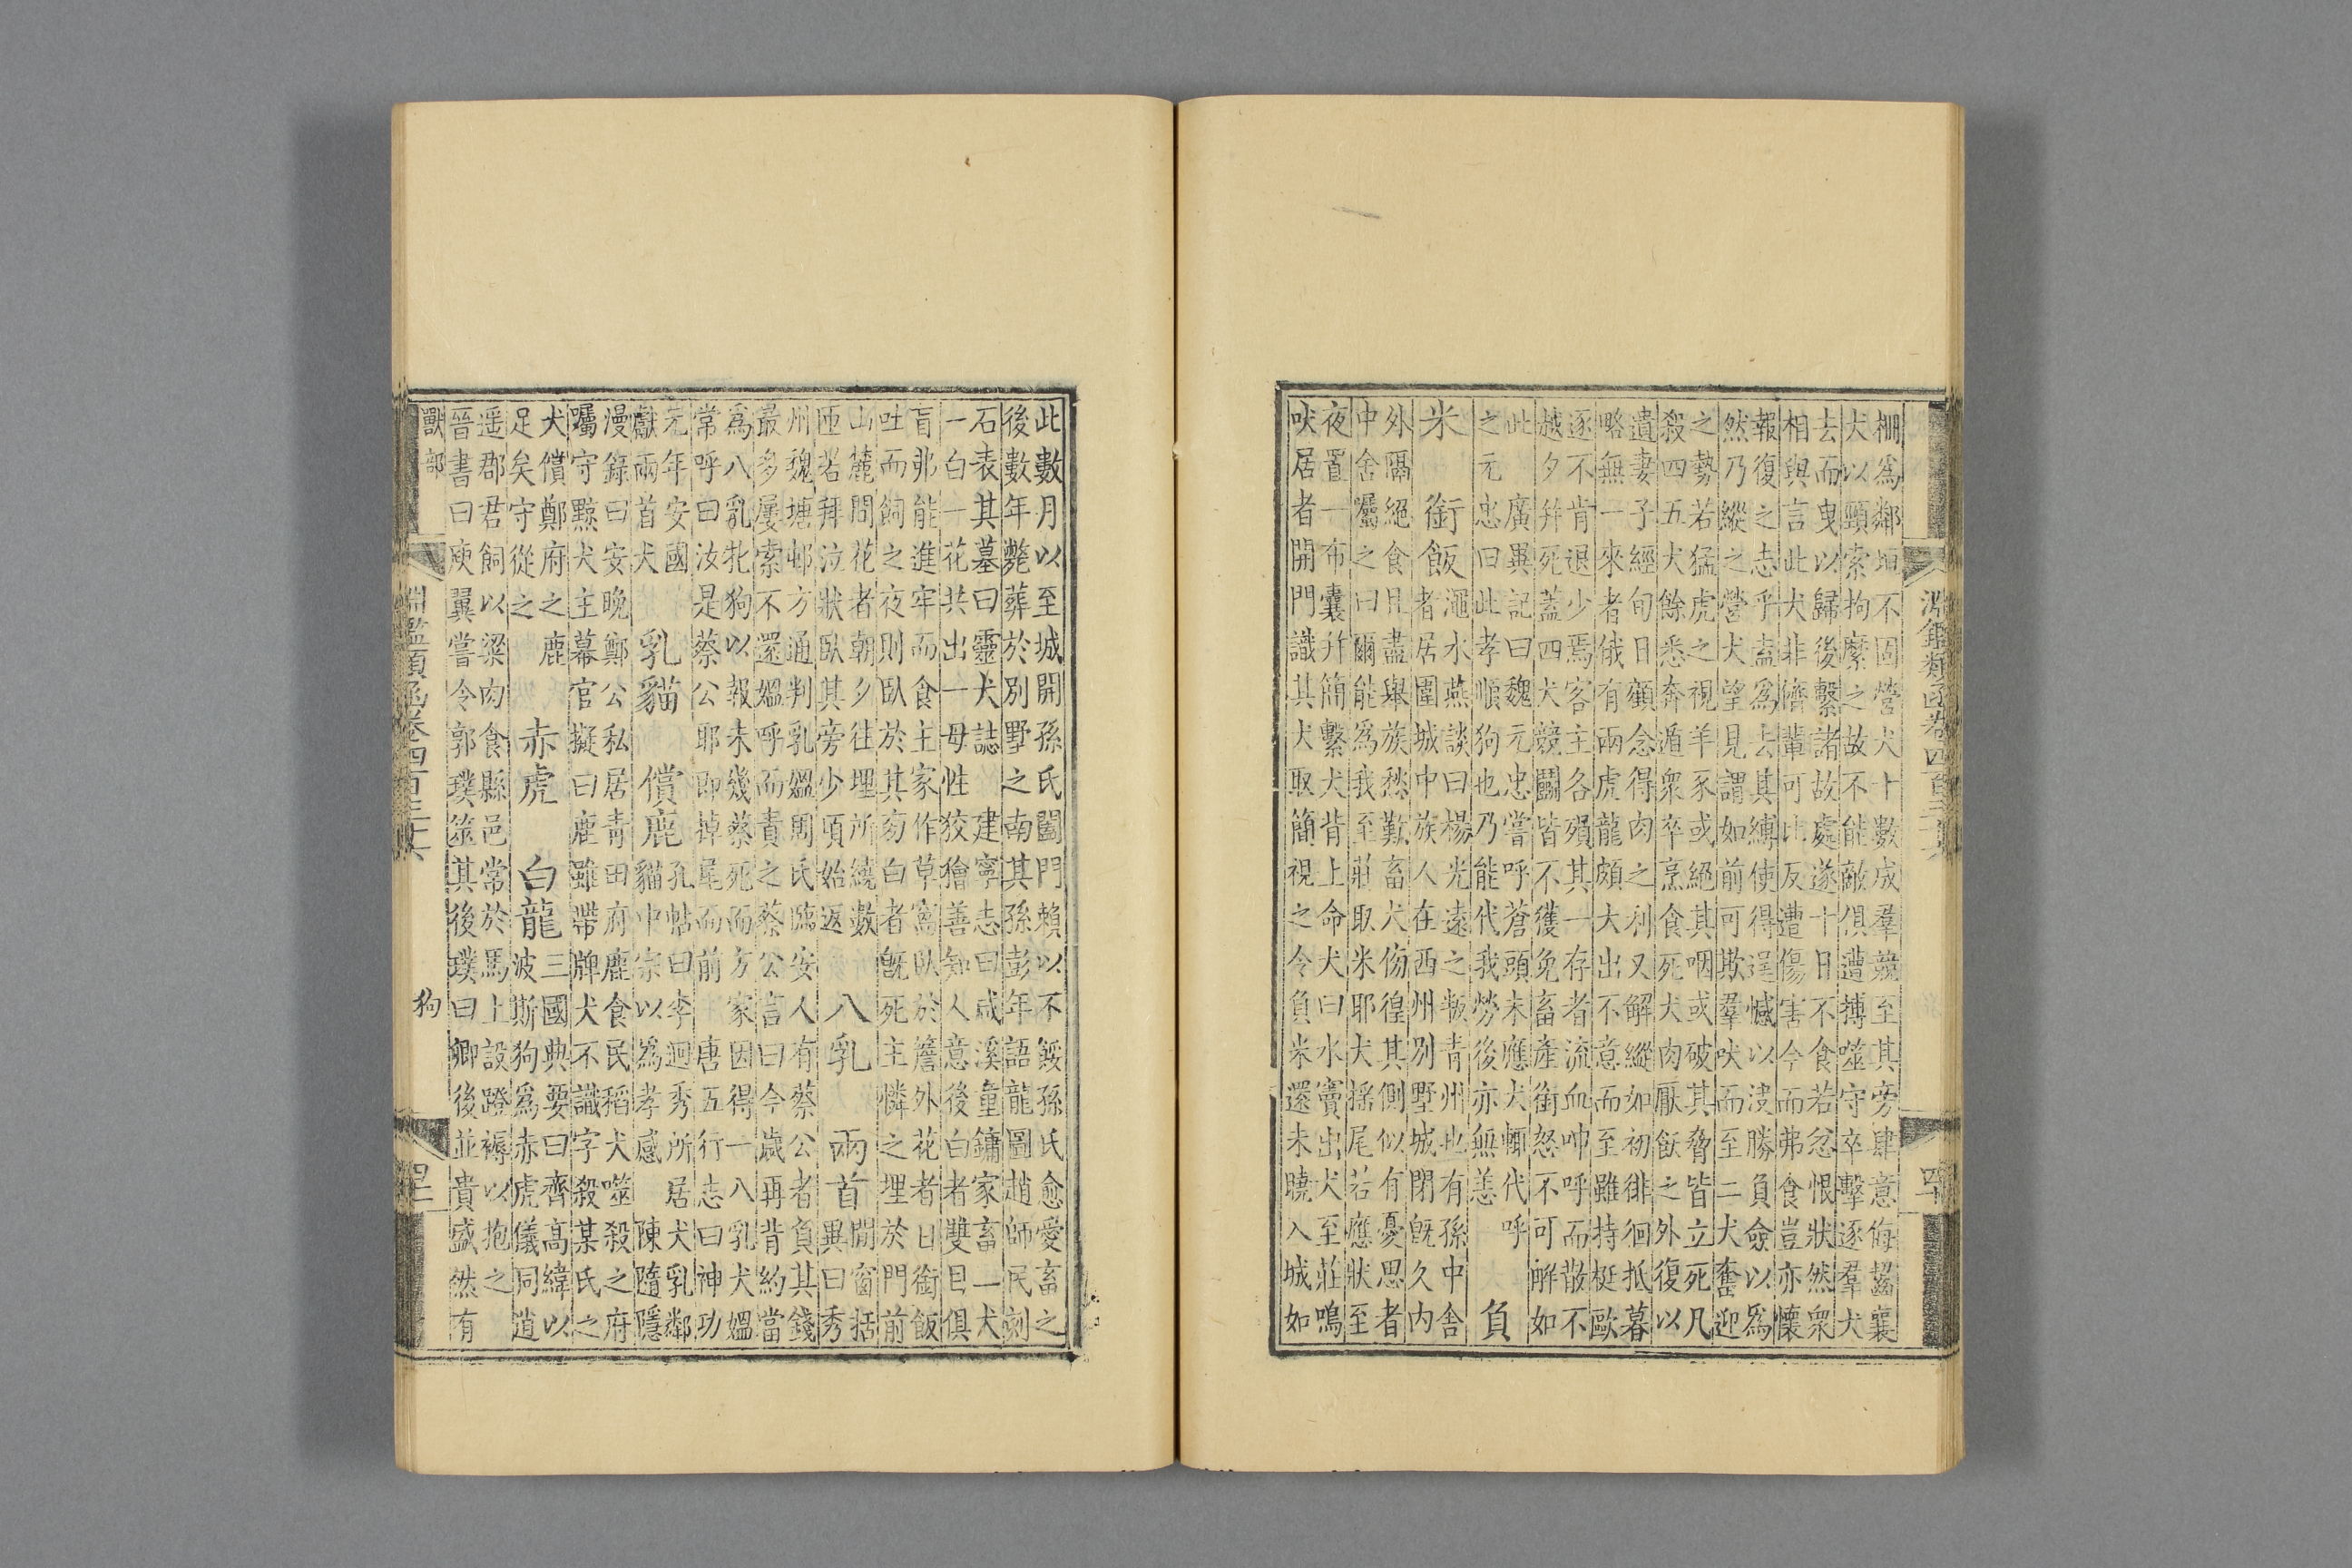 淵鑑類函卷四百三十六
棚爲鄰垣不固營犬十數成羣競至其旁肆意侮齧襄
犬以頸索拘縻之故不能敵俱遭搏噬守卒擊逐羣犬
去而曳以歸後繫諸故處遂十日不食若忿恨狀然衆
相與言此犬非儕輩可比反遭傷害今而弗食豈亦懷
報復之志乎盍爲去其縛使得逞憾以決勝負僉以爲
然乃縱之營犬望見謂如前可欺羣吠而至二犬奮迎
之勢若猛虎之視羊豕或絕其咽或破其脅皆立死凡
殺四五犬餘悉奔遁衆卒烹食死犬肉厭飫之外復以
遺妻子經旬日顧念得肉之利又解縱如初徘徊抵暮
略無一來者俄有兩虎龍頗大出不意而至雖持梃歐
逐不肯退少焉客主各殞其一存者流血呻呼而散不
越夕并死蓋四犬競鬭皆不獲免畜產銜怒不可解如
此　廣異記曰魏元忠嘗呼蒼頭未應犬輒代呼
之元忠曰此孝順狗也乃能代我勞後亦無恙　負
米　銜飯
澠水燕談曰楊光遠之叛青州也有孫中舍
者居圍城中族人在西州別墅城閉旣久內
外隔絕食且盡舉族愁歎畜犬傍徨其側似有憂思者
中舍囑之曰爾能爲我至莊取米耶犬搖尾若應狀至
夜置一布囊并簡繫犬背上命犬曰水竇出犬至莊鳴
吠居者開門識其犬取簡視之令負米還未曉入城如
此數月以至城開孫氏闔門賴以不餒孫氏愈愛畜之
後數年斃葬於別墅之南其孫彭年語龍圖趙師民刻
石表其墓曰靈犬誌　建寧志曰咸溪童鏞家畜二犬
一白一花共出一母性狡獪善知人意後白者雙目俱
盲弗能進牢而食主家作草窩臥於簷外花者日銜飯
吐而飼之夜則臥於其旁白者旣死主憐之埋於門前
山麓間花者朝夕往埋所繞數
匝若拜泣狀臥其旁少頃始返　八乳　兩首
閒窗括
異曰秀
州魏塘邨方通判乳媼周氏臨安人有蔡公者負其錢
最多屢索不還媼呼而責之蔡公言曰今歲再背約當
爲八乳牝狗以報未幾蔡死而方家因得一八乳犬媼
常呼曰汝是蔡公耶即掉尾而前　唐五行志曰神功
元年安國
獻兩首犬　乳貓　償鹿
孔帖曰李迥秀所居犬乳鄰
貓中宗以爲孝感　陳隨隱
漫錄曰安晚鄭公私居靑田府鹿食民稻犬噬殺之府
囑守黥犬主幕官擬曰鹿雖帶牌犬不識字殺某氏之
犬償鄭府之鹿
足矣守從之　赤虎　白龍
三國典要曰齊高緯以
波斯狗爲赤虎儀同逍
遥郡君飼以粱肉食縣邑常於馬上設蹬褥以抱之
晉書曰庾翼嘗令郭璞筮其後璞曰卿後並貴盛然有
獸部　狗
淵鑑類函卷四百三十六